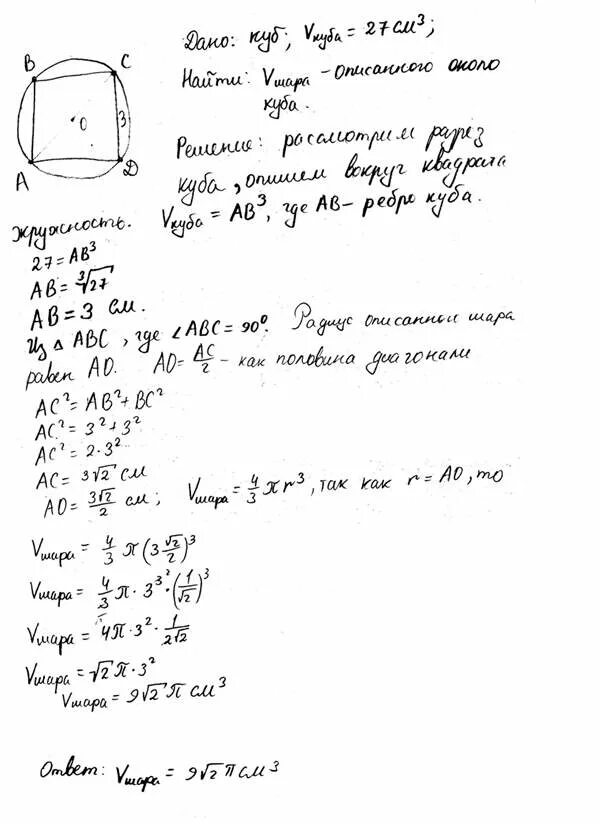 Дано: куб; Vкуба = 27 см³;
Найти: Vшара – описанного около
куба.
B C
O 3
A D
Решение: рассмотрим разрез
куба, опишем вокруг квадрата
окружность. Vкуба = AB³, где AB – ребро куба.
27 = AB³
AB = ∛27
AB = 3 см.
Из △ ABC, где ∠ABC = 90°. Радиус описанный шара
равен AO. AO = AC/2 – как половина диагонали
AC² = AB² + BC²
AC² = 3² + 3²
AC² = 2·3²
AC = 3√2 см
AO = 3√2/2 см; Vшара = 4/3 π r³, так как r = AO, то
Vшара = 4/3 π (3 √2/2)³
Vшара = 4/3 π · 3³ ² · (1/√2)³
Vшара = 4π · 3² · 1/2√2
Vшара = √2 π · 3²
Vшара = 9√2 π см³
Ответ: Vшара = 9√2 π см³